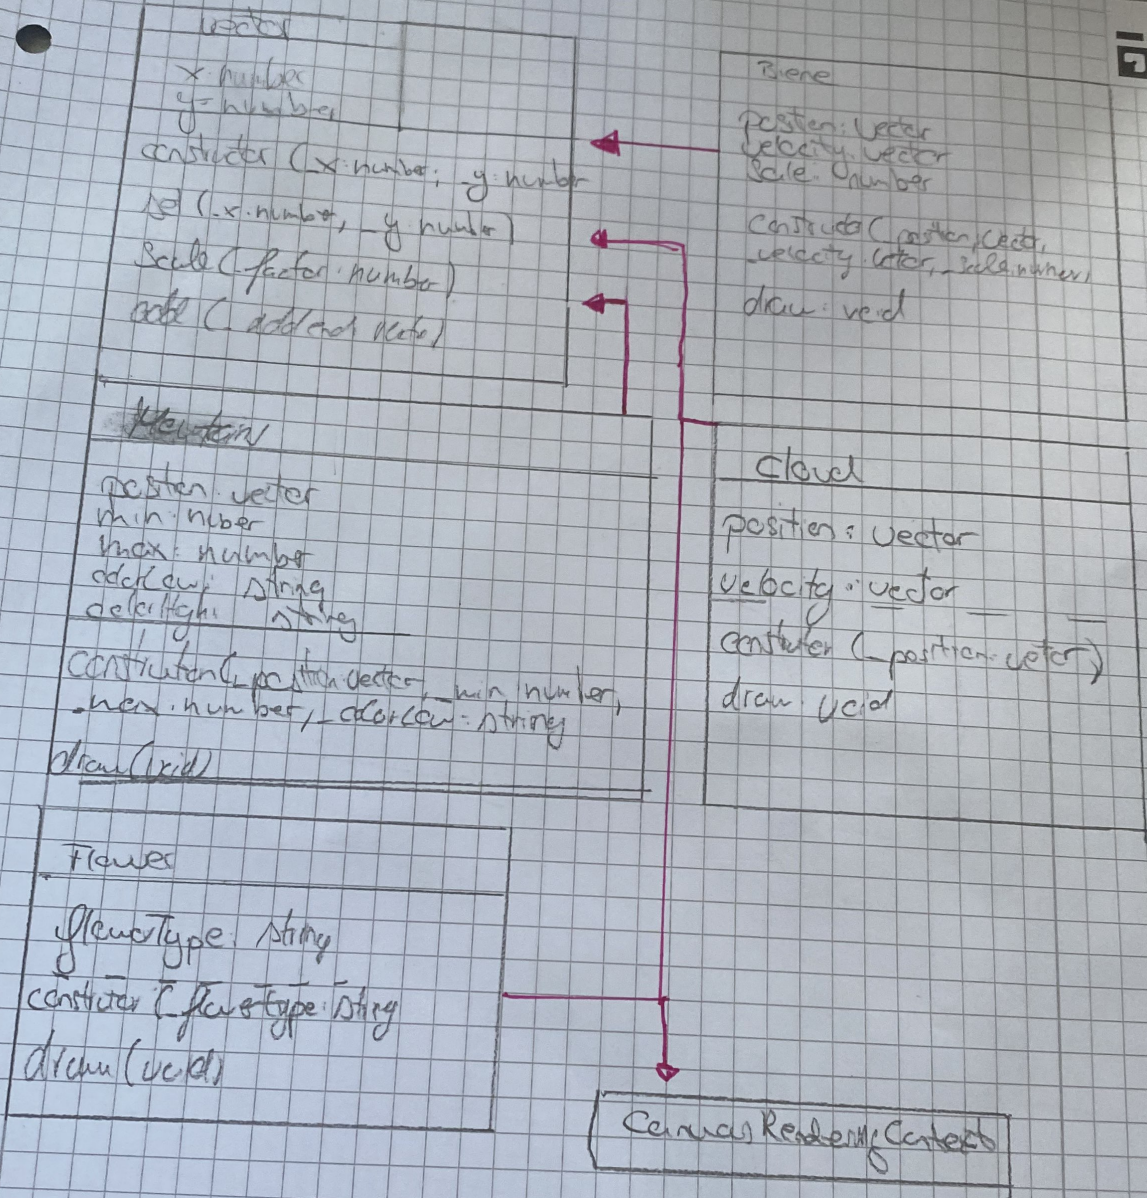 Vector
x: number
y: number
constructor (_x: number; _y: number
set (_x: number, _y: number)
Scale (_factor: number)
(_addend vector)
Biene
position: Vector
velocity: vector
Scale: number
constructor (_position: vector,
_velocity: vector, _scale: number)
draw: void
Mountain
position: vector
min: number
max: number
colorLow: string
colorHigh: string
constructor (_position: vector, _min: number,
_max: number, _colorLow: string
draw (void)
Cloud
position: vector
velocity: vector
constructor (_position: vector)
draw: void
Flower
flowerType: string
constructor (_flowerType: string
draw (void)
CanvasRenderingContext